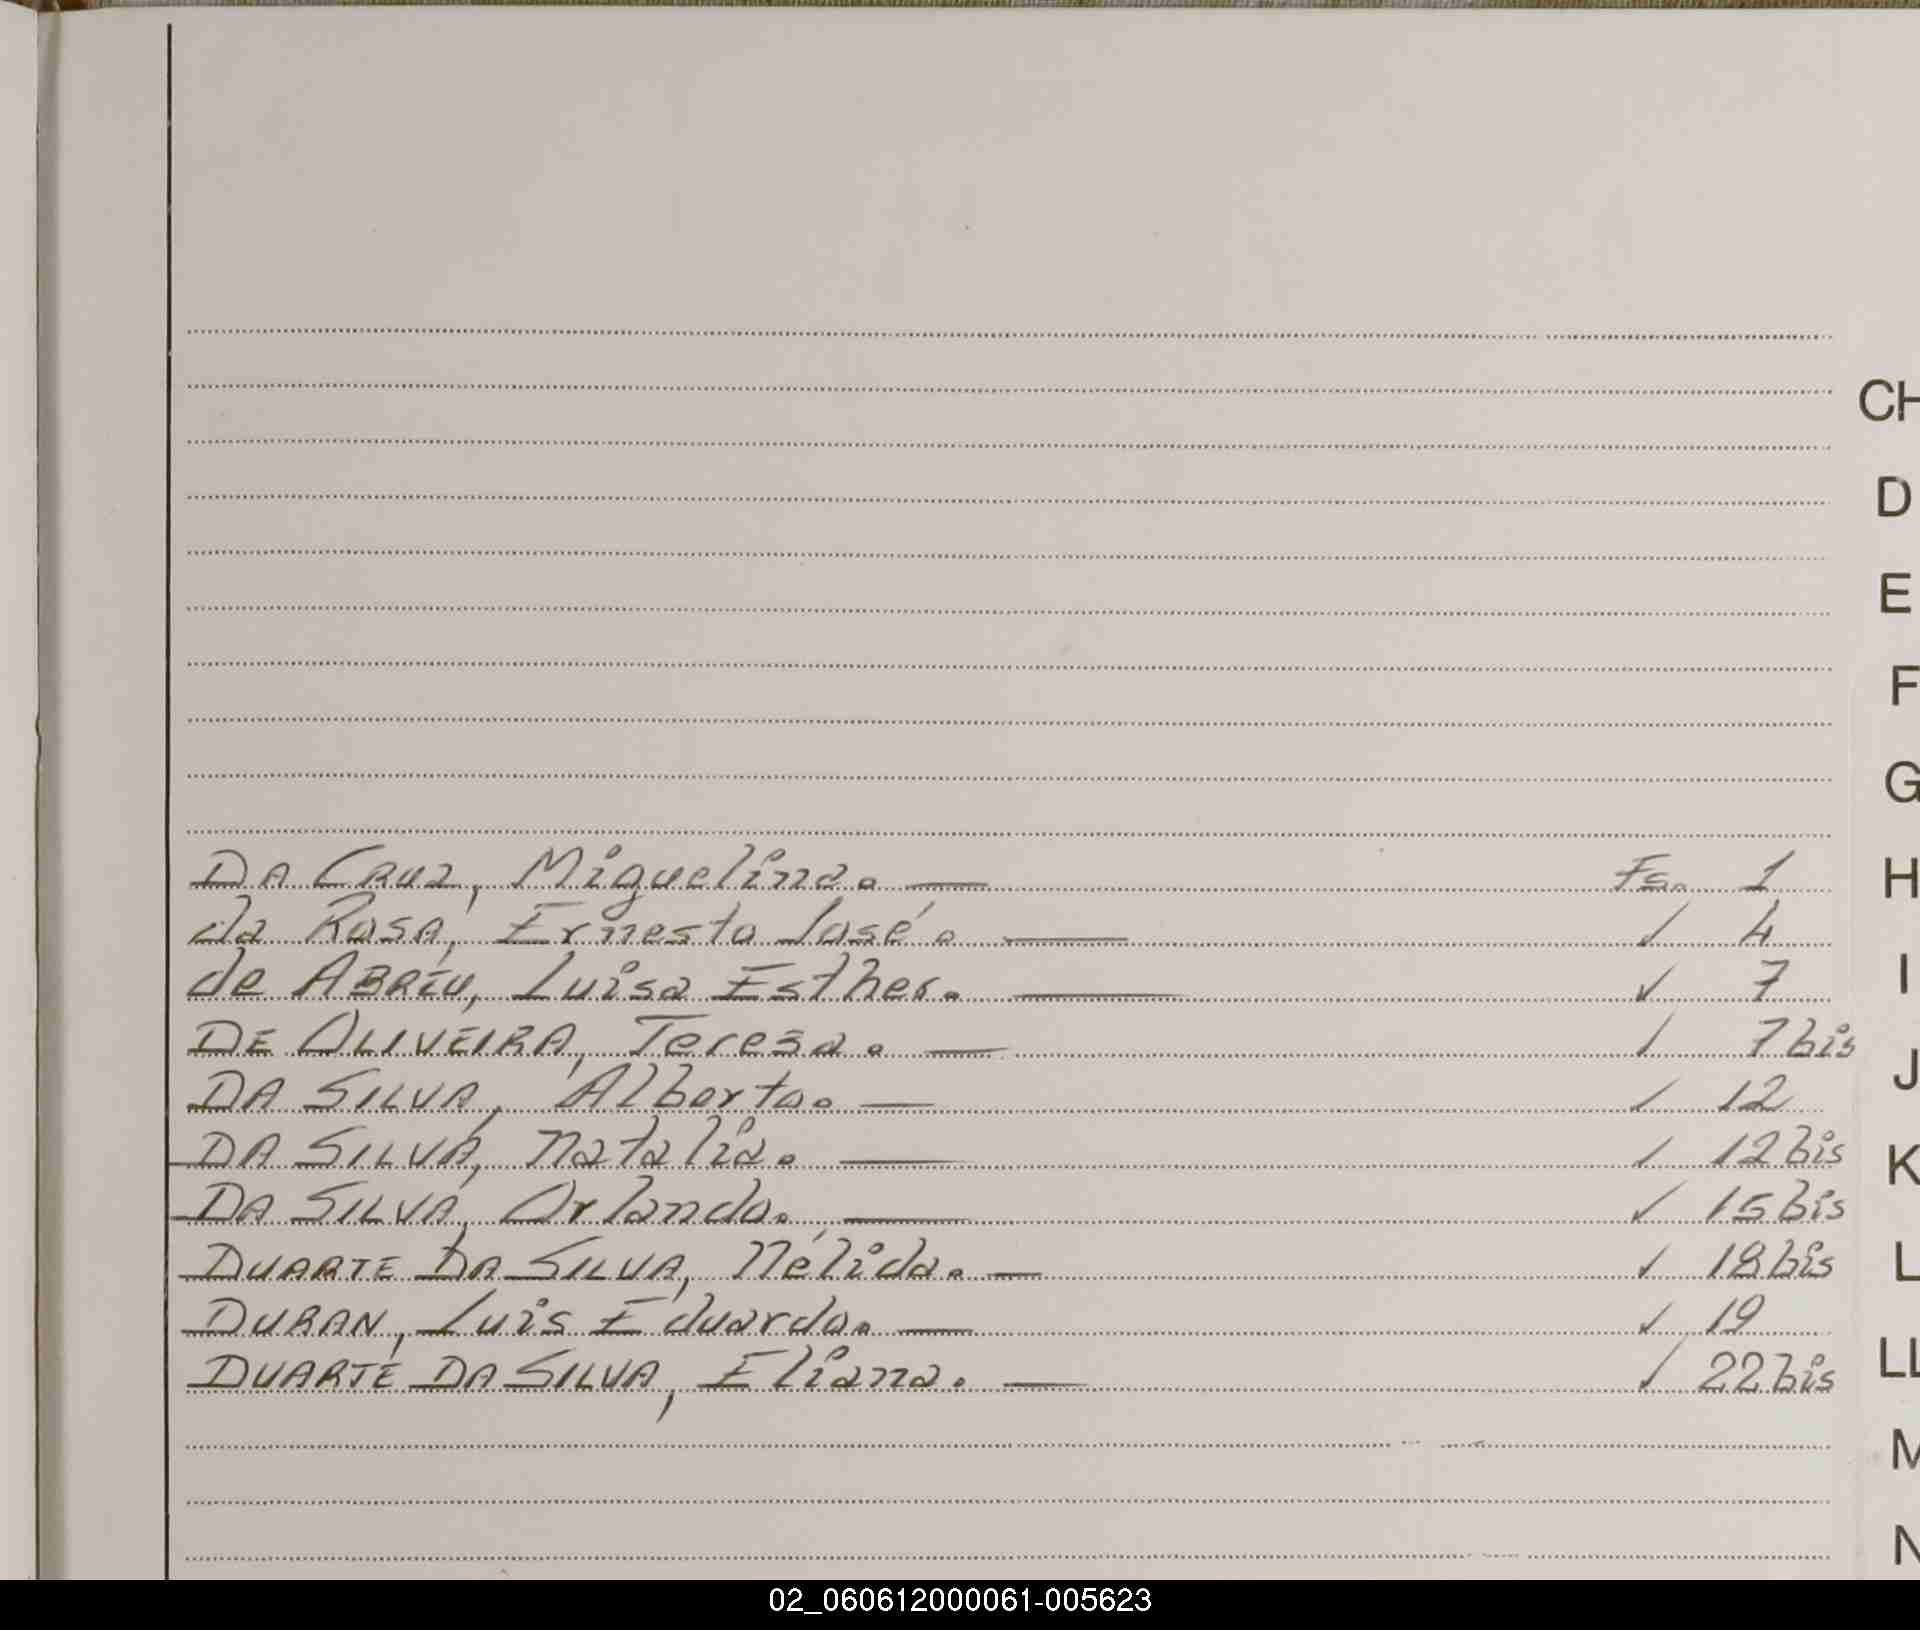 CH
D
E
F
G
DA CRUZ, Miguelina. — Fs. 1
H
da ROSA, Ernesto José. — ✓ 4
de ABREU, Luisa Esther. — ✓ 7
I
DE OLIVEIRA, Teresa. — ✓ 7 bis
J
DA SILVA, Alberto. — ✓ 12
DA SILVA, Natalia. — ✓ 12 bis
K
DA SILVA, Orlando. — ✓ 15 bis
DUARTE DA SILVA, Nélida. — ✓ 18 bis
L
DURAN, Luis Eduardo. — ✓ 19
DUARTE DA SILVA, Eliana. — ✓ 22 bis
LL
M
N
02_060612000061-005623